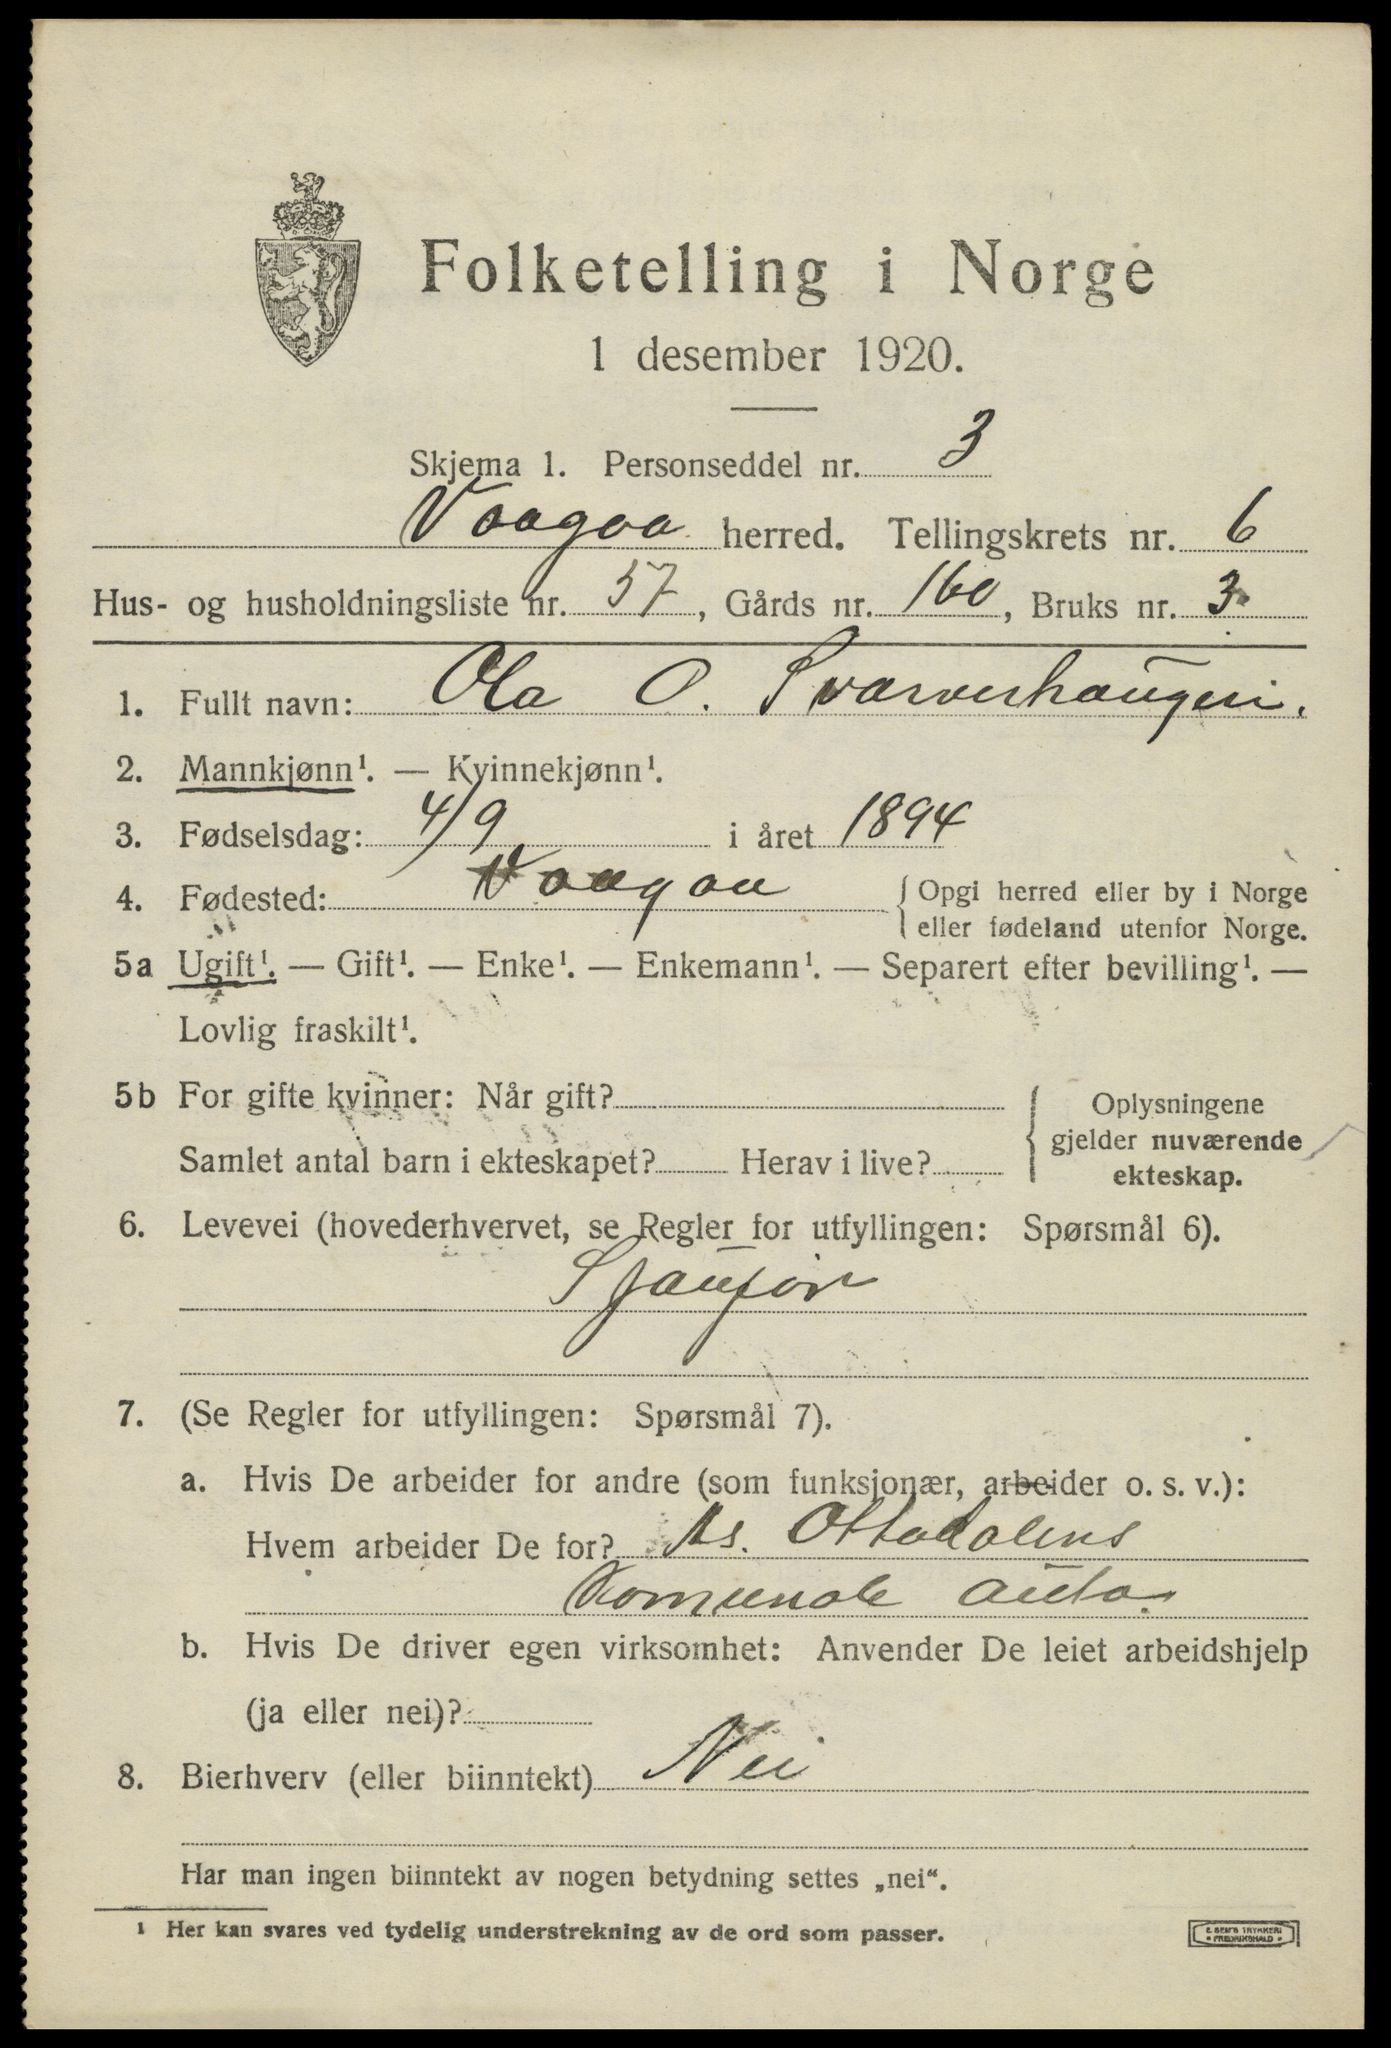 Folketelling i Norge
1 desember 1920.
Skjema 1. Personseddel nr. 3
Vaagaa herred. Tellingskrets nr. 6
Hus- og husholdningsliste nr. 57, Gårds nr. 160, Bruks nr. 3
1. Fullt navn: Ola O. Svarverhaugen.
2. Mannkjønn¹. — Kvinnekjønn¹.
3. Fødselsdag: 4/9 i året 1894
4. Fødested: Vaagaa { Opgi herred eller by i Norge
eller fødeland utenfor Norge.
5a Ugift¹. — Gift¹. — Enke¹. — Enkemann¹. — Separert efter bevilling¹. —
Lovlig fraskilt¹.
5b For gifte kvinner: Når gift?
Samlet antal barn i ekteskapet? Herav i live?
{ Oplysningene
gjelder nuværende
ekteskap.
6. Levevei (hovederhvervet, se Regler for utfyllingen: Spørsmål 6).
Sjaufør
7. (Se Regler for utfyllingen: Spørsmål 7).
a. Hvis De arbeider for andre (som funksjonær, arbeider o. s. v.):
Hvem arbeider De for? As. Ottadalens
Komunale Auto.
b. Hvis De driver egen virksomhet: Anvender De leiet arbeidshjelp
(ja eller nei)?
8. Bierhverv (eller biinntekt) Nei
Har man ingen biinntekt av nogen betydning settes „nei“.
¹ Her kan svares ved tydelig understrekning av de ord som passer.
E. SEM'S TRYKKERI
• FREDRIKSHALD •